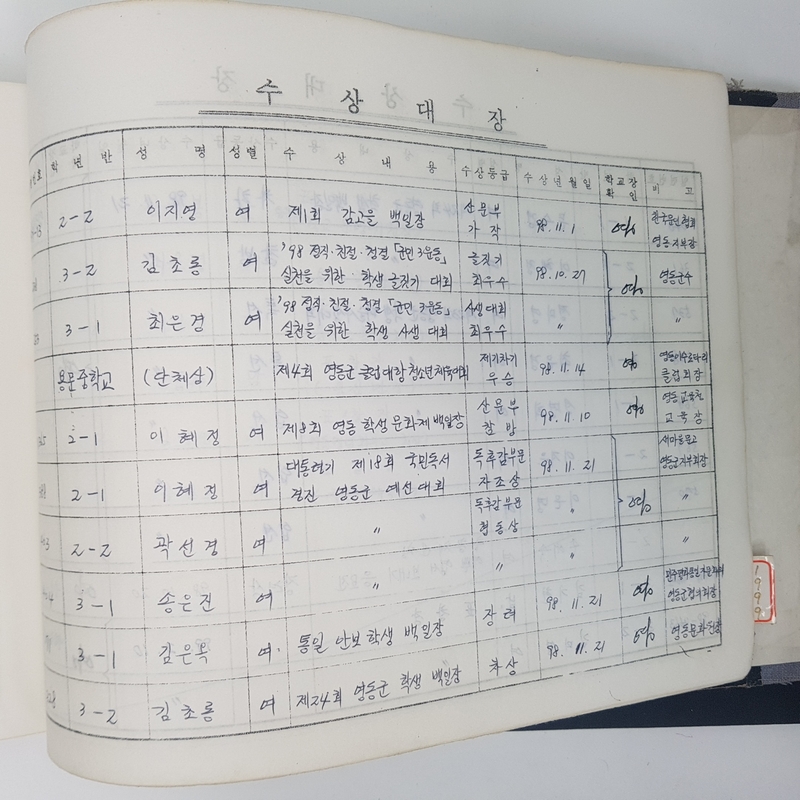 수 상 대 장
학 년 반 성 명 성별 수 상 내 용 수상등급 수 상 년 월 일 학교장 확 인 비 고
2-2 이지영 여 제1회 감고을 백일장 산문부 가작 98. 11. 1 한국문인협회 영동지부장
3-2 김초롱 여 '98 정직·친절·청결 「군민 3운동」 실천을 위한 학생 글짓기 대회 글짓기 최우수 98. 10. 27 영동군수
3-1 최은경 여 '98 정직·친절·청결 「군민 3운동」 실천을 위한 학생 사생 대회 사생대회 최우수 〃 〃
용문중학교 (단체상) 제4회 영동군 클럽대항 청소년체육대회 제기차기 우승 98. 11. 14 클럽회장
2-1 이혜정 여 제8회 영동 학생문화제 백일장 산문부 참방 98. 11. 10 영동교육청 교육장
2-1 이혜정 여 대통령기 제18회 국민독서 경진 영동군 예선대회 독후감부문 자조상 98. 11. 21 새마을문고 영동군지부회장
2-2 곽선경 여 〃 독후감부문 협동상 〃 〃
3-1 송은진 여 〃 〃 〃 〃
3-1 김은옥 여 통일 안보 학생 백일장 장려 98. 11. 21
3-2 김초롱 여 제24회 영동군 학생 백일장 차상 98. 11. 21 영동문화원장
1999